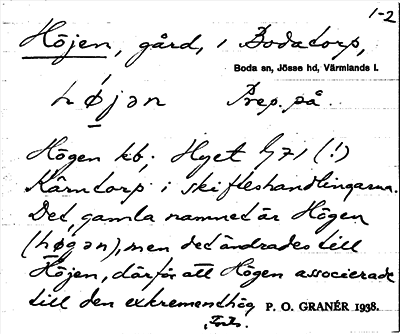 1-2
Höjen, gård, i Bodatorp,
Boda sn, Jösse hd, Värmlands l.
højən Prep. på.
Högen kb; Hyet 1/2 71 (!)
Kärntorp i skifteshandlingarna.
Det gamla namnet är Högen
(høgən), men det ändrades till
Höjen, därför att Högen associerade
till den exkrementhög P. O. GRANÉR 1938.
Forts.